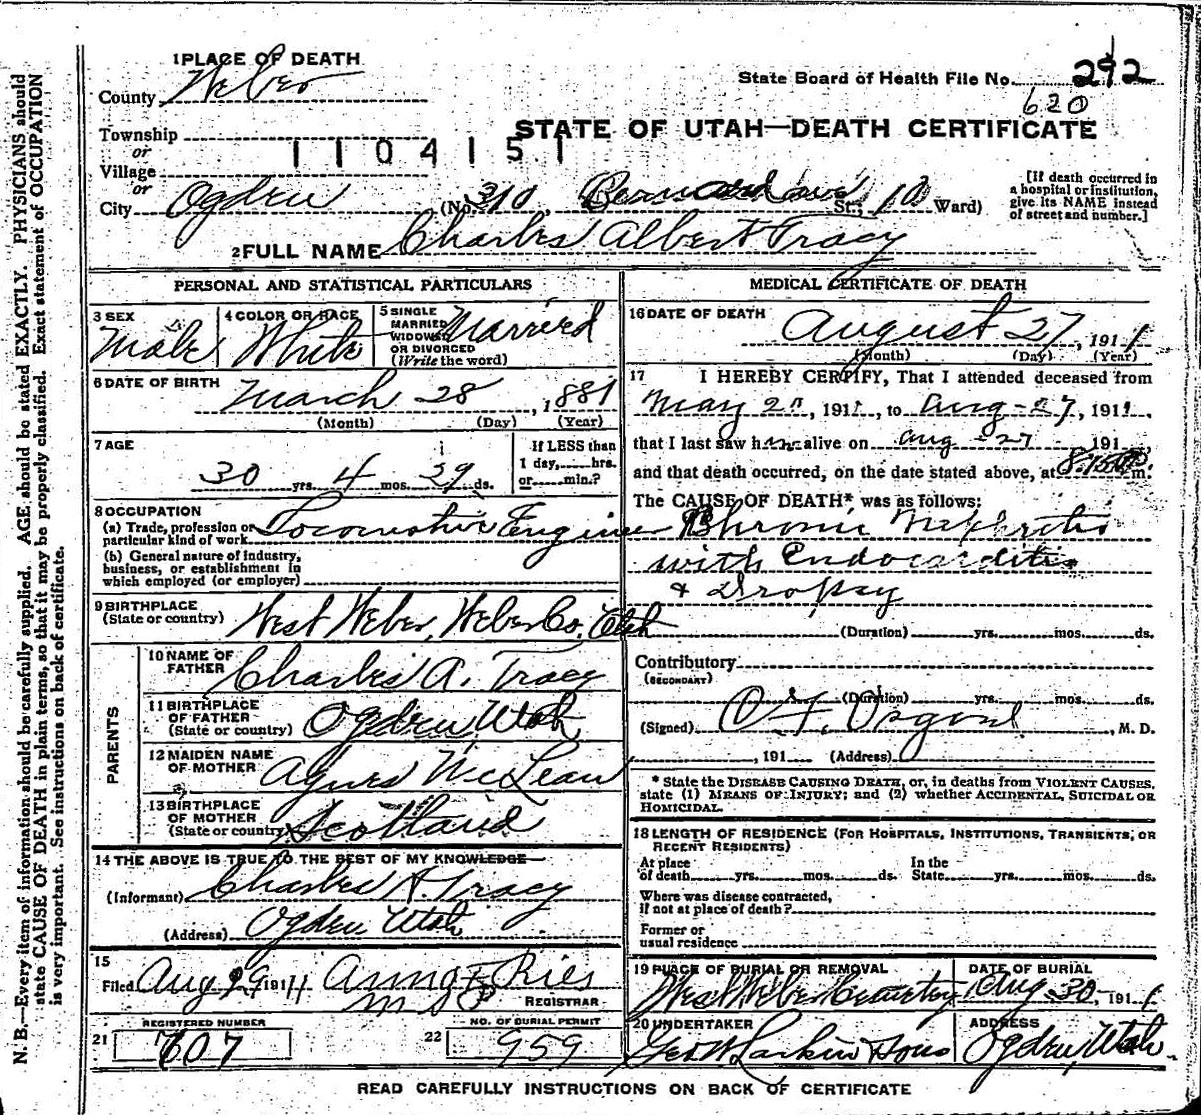 1 PLACE OF DEATH
County Weber
State Board of Health File No. 292
620
STATE OF UTAH—DEATH CERTIFICATE
Township
or
1104151
Village
or
City Ogden (No. 310, St.; 10 Ward)
[If death occurred in a hospital or institution, give its NAME instead of street and number.]
2 FULL NAME Charles Albert Tracy
PERSONAL AND STATISTICAL PARTICULARS
3 SEX
Male
4 COLOR OR RACE
White
5 SINGLE
MARRIED
WIDOWED
OR DIVORCED
(Write the word)
Married
6 DATE OF BIRTH
March 28, 1881
(Month) (Day) (Year)
7 AGE
30 yrs. 4 mos. 29 ds.
If LESS than
1 day, hrs.
or min.?
8 OCCUPATION
(a) Trade, profession or
particular kind of work Locomotive Engineer
(b) General nature of industry,
business, or establishment in
which employed (or employer)
9 BIRTHPLACE
(State or country) West Weber, Weber Co. Utah
PARENTS
10 NAME OF
FATHER Charles A. Tracy
11 BIRTHPLACE
OF FATHER
(State or country) Ogden Utah
12 MAIDEN NAME
OF MOTHER Agnes McLean
13 BIRTHPLACE
OF MOTHER
(State or country) Scotland
14 THE ABOVE IS TRUE TO THE BEST OF MY KNOWLEDGE
(Informant) Charles A. Tracy
(Address) Ogden Utah
15
Filed Aug 29 1911 REGISTRAR
21 REGISTERED NUMBER
707
22 NO. OF BURIAL PERMIT
959
MEDICAL CERTIFICATE OF DEATH
16 DATE OF DEATH
August 27, 1911
(Month) (Day) (Year)
17 I HEREBY CERTIFY, That I attended deceased from
May 2, 1911, to Aug-27, 1911,
that I last saw him alive on Aug-27 191
and that death occurred, on the date stated above, at 8:15 m.
The CAUSE OF DEATH* was as follows:
Chronic Nephritis
with Endocarditis
& Dropsy
(Duration) yrs. mos. ds.
Contributory
(SECONDARY)
(Duration) yrs. mos. ds.
(Signed) , M. D.
, 191 (Address)
* State the DISEASE CAUSING DEATH, or, in deaths from VIOLENT CAUSES,
state (1) MEANS OF INJURY; and (2) whether ACCIDENTAL, SUICIDAL OR
HOMICIDAL.
18 LENGTH OF RESIDENCE (FOR HOSPITALS, INSTITUTIONS, TRANSIENTS, OR
RECENT RESIDENTS)
At place
of death yrs. mos. ds.
In the
State yrs. mos. ds.
Where was disease contracted,
if not at place of death?
Former or
usual residence
19 PLACE OF BURIAL OR REMOVAL
West Weber Cemetery
DATE OF BURIAL
Aug 30, 1911
20 UNDERTAKER
Geo W Larkin Sons
ADDRESS
Ogden, Utah
READ CAREFULLY INSTRUCTIONS ON BACK OF CERTIFICATE
N. B.—Every item of information should be carefully supplied. AGE should be stated EXACTLY. PHYSICIANS should
state CAUSE OF DEATH in plain terms, so that it may be properly classified. Exact statement of OCCUPATION
is very important. See instructions on back of certificate.